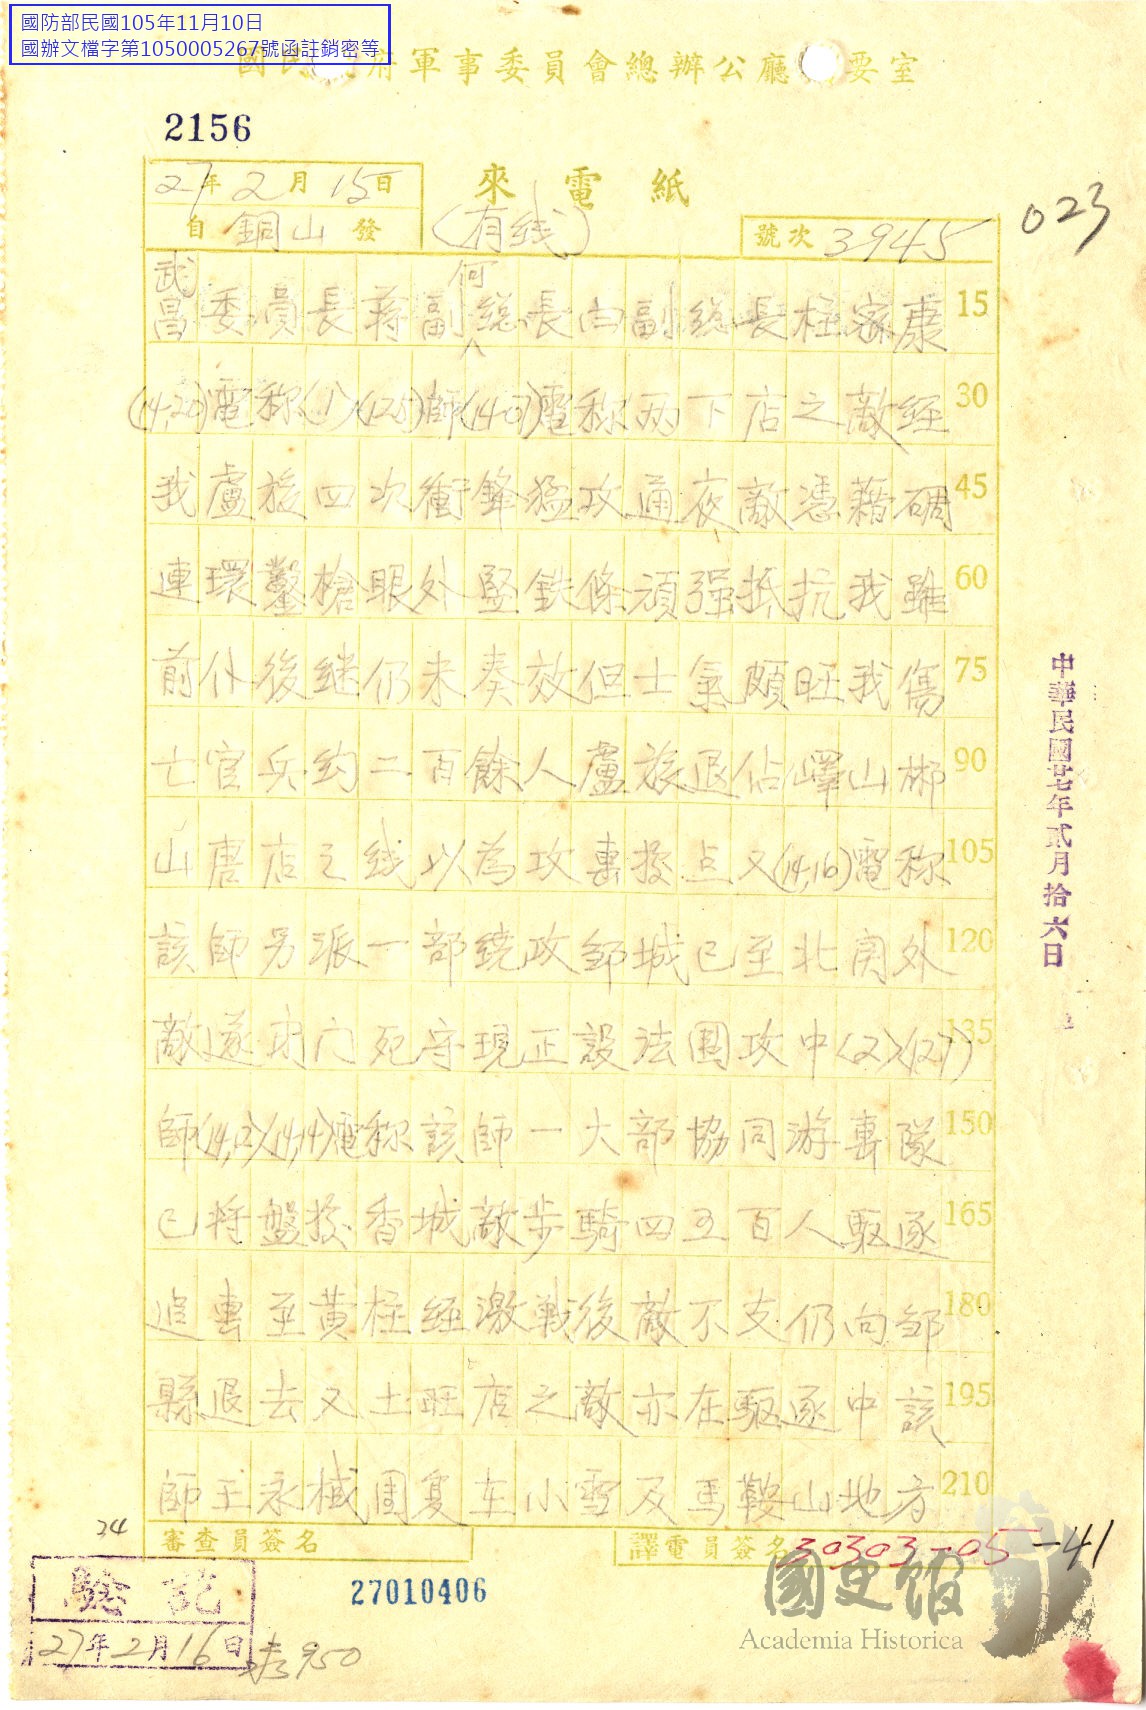 國防部民國105年11月10日
國辦文檔字第1050005267號函註銷密等
國民府軍事委員會總辦公廳要室
2156
27年2月15日
來電紙
自銅山發
(有线)
號次3945
023
武昌委員長蔣副何總長白副總長桂密康
15
(14,20)電称(1)(125)師(14,)電称两下店之敵經
30
我盧旅四次衝鋒猛攻通夜敵憑藉碉
45
連環鑿槍眼外竪鉄條頑强抵抗我雖
60
前仆後継仍未奏效但士氣頗旺我傷
75
亡官兵約二百餘人盧旅退佔嶧山
90
山唐店之线以為攻擊據点又(14,16)電称
105
該師另派一部繞攻鄒城已至北関外
120
敵遂闭门死守現正設法圍攻中(2)(127)
135
師(14,12)(14,14)電称該師一大部協同游擊隊
150
已將盤據香城敵步騎四五百人駆逐
165
追擊至黃柱經激戰後敵不支仍向鄒
180
縣退去又土旺店之敵亦在駆逐中該
195
師王永械團复在小雪及馬鞍山地方
210
中華民國廿七年貳月拾六日
審查員簽名
譯電員簽名
30303-05-41
34
27010406
驗記
27年2月16日
950
國史館
Academia Historica